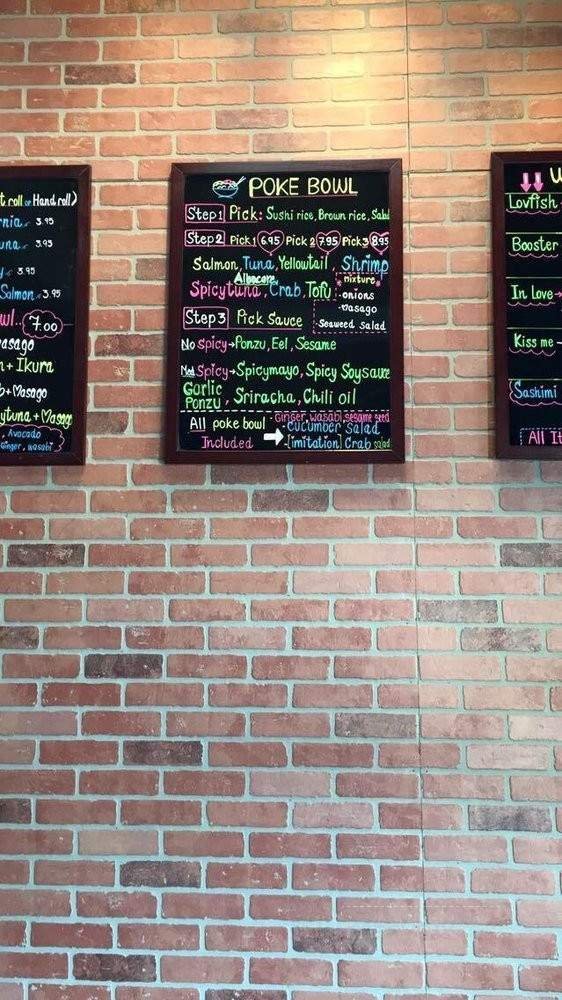 t roll or Hand roll)
rnia 3.95
una 3.95
y 3.95
Salmon 3.95
wl 7.00
asago
n + Ikura
b + Masago
ytuna + Masago
, Avocado
Ginger, wasabi
POKE BOWL
Step 1 Pick: Sushi rice, Brown rice, Sala
Step 2 Pick 1 6.95 Pick 2 7.95 Pick 3 8.95
Salmon, Tuna, Yellowtail, Shrimp
Albocore
Spicytuna, Crab, Tofu
mixture
-onions
-Masago
-Seaweed salad
Step 3 Pick Sauce
No spicy→Ponzu, Eel, Sesame
Spicy→Spicymayo, Spicy Soysauce
Garlic Ponzu, Sriracha, Chili oil
All poke bowl Included
Ginger, wasabi, sesame seed
-Cucumber salad
-[imitation] Crab salad
W
Lovfish
Booster
In Love→
Kiss me
Sashimi
All It